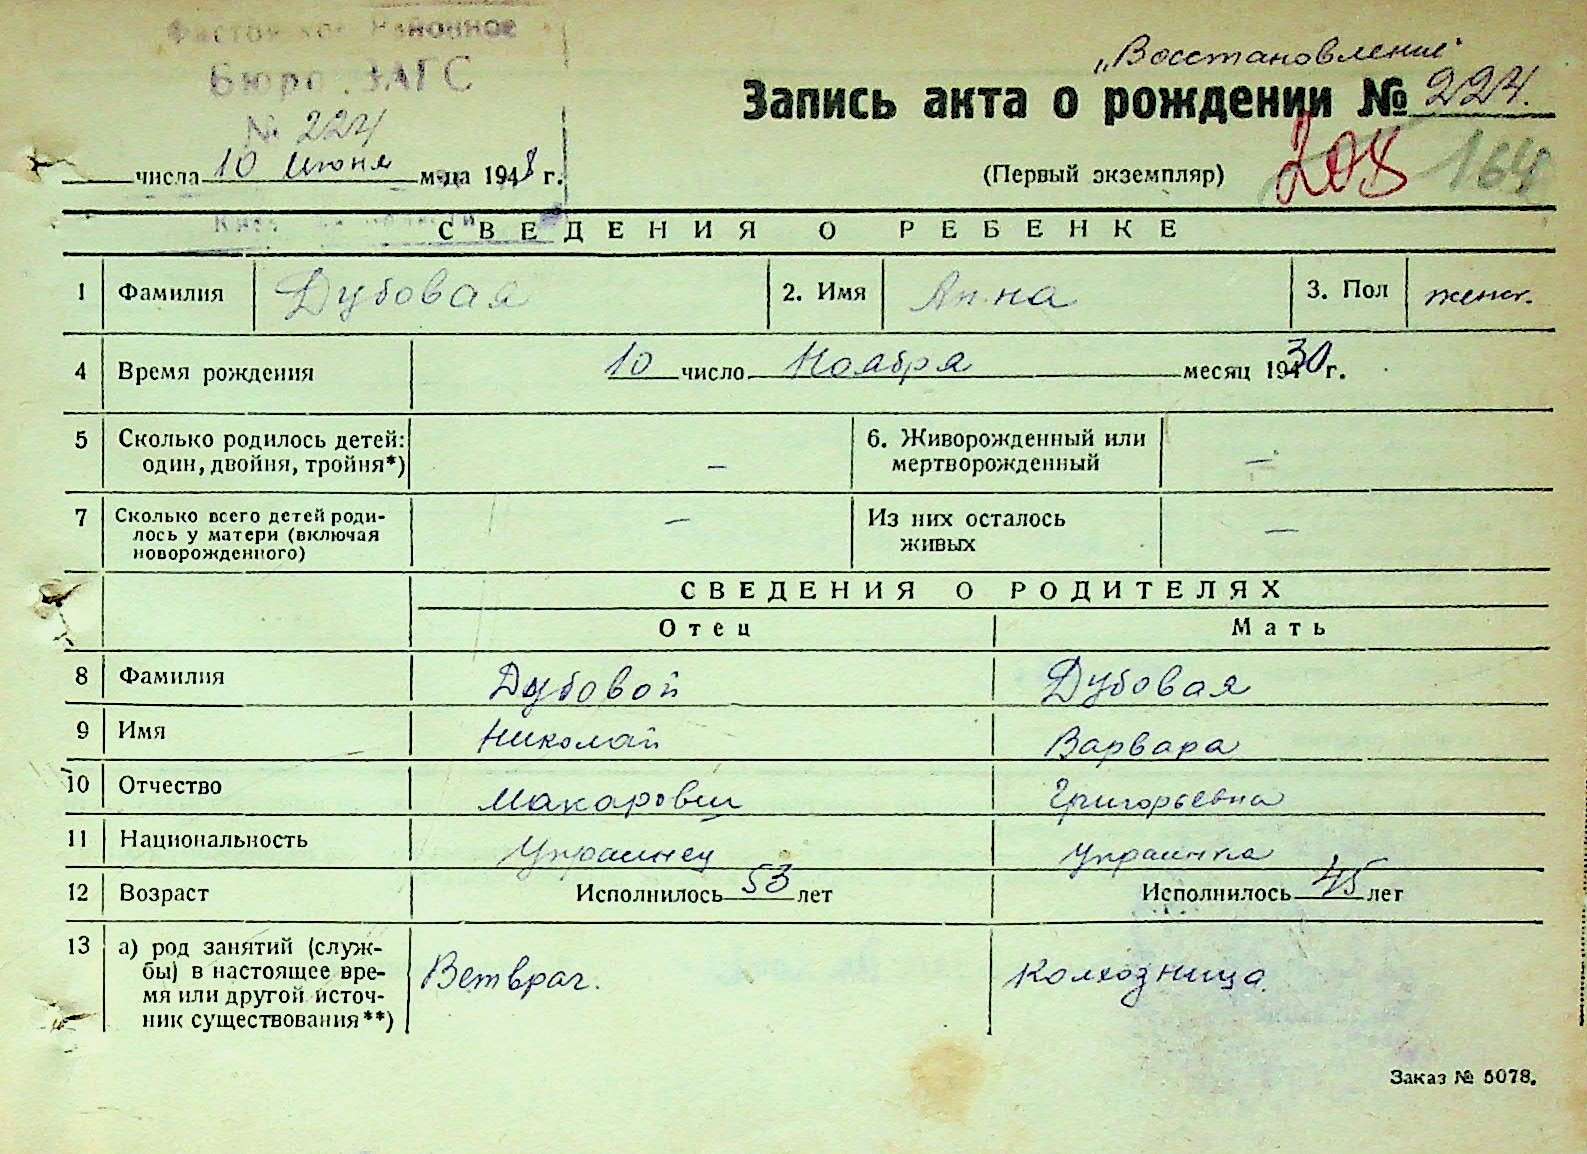 Районное
Бюро ЗАГС
№ 224
числа 10 Июня м-ца 1948 г.
области
„Восстановление"
Запись акта о рождении № 224.
(Первый экземпляр)
208 164
СВЕДЕНИЯ О РЕБЕНКЕ
1 Фамилия Дубовая 2. Имя Анна 3. Пол женск.
4 Время рождения 10 число Ноября месяц 1930 г.
5 Сколько родилось детей: 6. Живорожденный или
один, двойня, тройня*) — мертворожденный —
7 Сколько всего детей роди- — Из них осталось —
лось у матери (включая живых
новорожденного)
СВЕДЕНИЯ О РОДИТЕЛЯХ
Отец Мать
8 Фамилия Дубовой Дубовая
9 Имя Николай Варвара
10 Отчество Макарович Григорьевна
11 Национальность Украинец Украинка
12 Возраст Исполнилось 53 лет Исполнилось 45 лет
13 а) род занятий (служ-
бы) в настоящее вре- Ветврач. Колхозница.
мя или другой источ-
ник существования**)
Заказ № 5078.